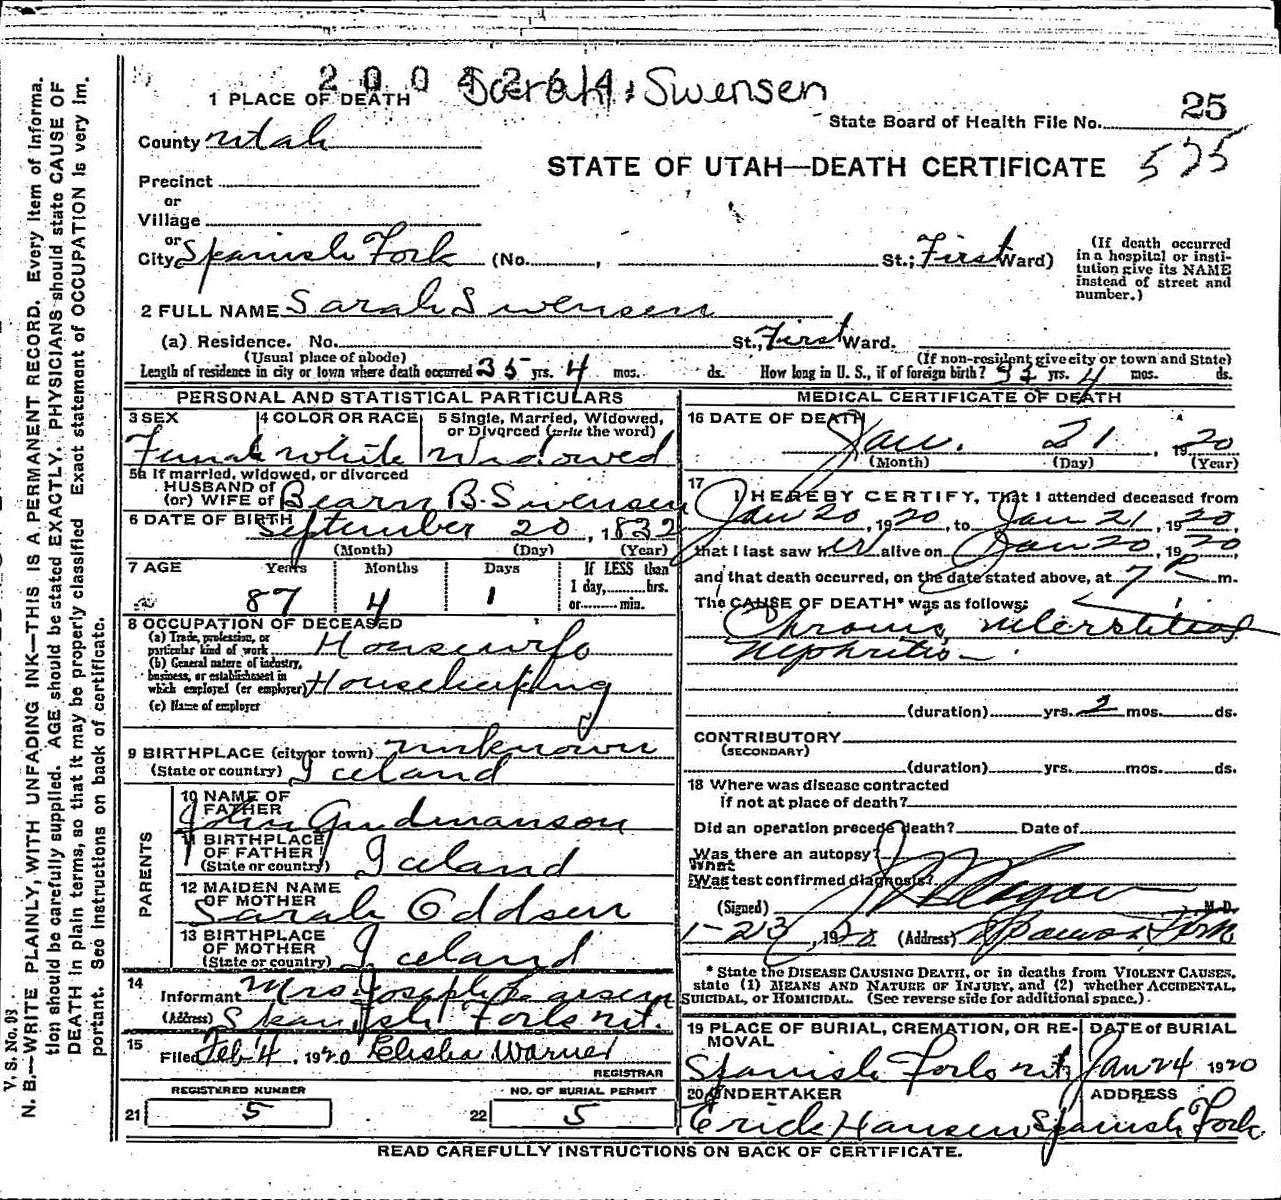 2004261 Sarah Swensen
1 PLACE OF DEATH
25
State Board of Health File No.
575
County Utah
STATE OF UTAH—DEATH CERTIFICATE
Precinct
or
Village
or
City Spanish Fork (No. , St.; First Ward)
(If death occurred in a hospital or insti-
tution give its NAME instead of street and number.)
2 FULL NAME Sarah Swensen
(a) Residence. No. St., First Ward.
(Usual place of abode) (If non-resident give city or town and State)
Length of residence in city or town where death occurred 35 yrs. 4 mos. ds. How long in U. S., if of foreign birth? yrs. 4 mos. ds.
PERSONAL AND STATISTICAL PARTICULARS
3 SEX 4 COLOR OR RACE 5 Single, Married, Widowed,
or Divorced (write the word)
Female White Widowed
5a If married, widowed, or divorced
HUSBAND of
(or) WIFE of Bearn B. Swensen
6 DATE OF BIRTH September 20, 1832
(Month) (Day) (Year)
7 AGE Years Months Days If LESS than
1 day, hrs.
or min.
87 4 1
8 OCCUPATION OF DECEASED
(a) Trade, profession, or
particular kind of work Housewife
(b) General nature of industry,
business, or establishment in
which employed (or employer) Housekeeping
(c) Name of employer
9 BIRTHPLACE (city or town) unknown
(State or country) Iceland
PARENTS
10 NAME OF
FATHER John Gudmanson
11 BIRTHPLACE
OF FATHER
(State or country) Iceland
12 MAIDEN NAME
OF MOTHER Sarah Oddsen
13 BIRTHPLACE
OF MOTHER
(State or country) Iceland
14
Informant Mrs. Joseph Larsen
(Address) Spanish Fork Ut.
15
Filed Feb 4, 1920 Elisha Warner
REGISTRAR
REGISTERED NUMBER NO. OF BURIAL PERMIT
21 5 22 5
MEDICAL CERTIFICATE OF DEATH
16 DATE OF DEATH
Jan. 21, 1920
(Month) (Day) (Year)
17
I HEREBY CERTIFY, That I attended deceased from
Jan 20, 1920, to Jan 21, 1920,
that I last saw her alive on Jan 20, 1920
and that death occurred, on the date stated above, at 7 P m.
The CAUSE OF DEATH* was as follows:
Chronic interstitial
nephritis
(duration) yrs. 2 mos. ds.
CONTRIBUTORY
(SECONDARY)
(duration) yrs. mos. ds.
18 Where was disease contracted
if not at place of death?
Did an operation precede death? Date of
Was there an autopsy?
What
Was test confirmed diagnosis?
(Signed) M.D.
1-23, 1920 (Address) Spanish Fork
* State the DISEASE CAUSING DEATH, or in deaths from VIOLENT CAUSES,
state (1) MEANS AND NATURE OF INJURY, and (2) whether ACCIDENTAL,
SUICIDAL, or HOMICIDAL. (See reverse side for additional space.)
19 PLACE OF BURIAL, CREMATION, OR RE-
MOVAL DATE of BURIAL
Spanish Fork Ut Jan 24 1920
20 UNDERTAKER ADDRESS
Erick Hansen Spanish Fork
READ CAREFULLY INSTRUCTIONS ON BACK OF CERTIFICATE.
V. S. No. 63
N. B.—WRITE PLAINLY, WITH UNFADING INK—THIS IS A PERMANENT RECORD. Every item of informa.
tion should be carefully supplied. AGE should be stated EXACTLY. PHYSICIANS should state CAUSE OF
DEATH in plain terms, so that it may be properly classified. Exact statement of OCCUPATION is very im.
portant. See instructions on back of certificate.